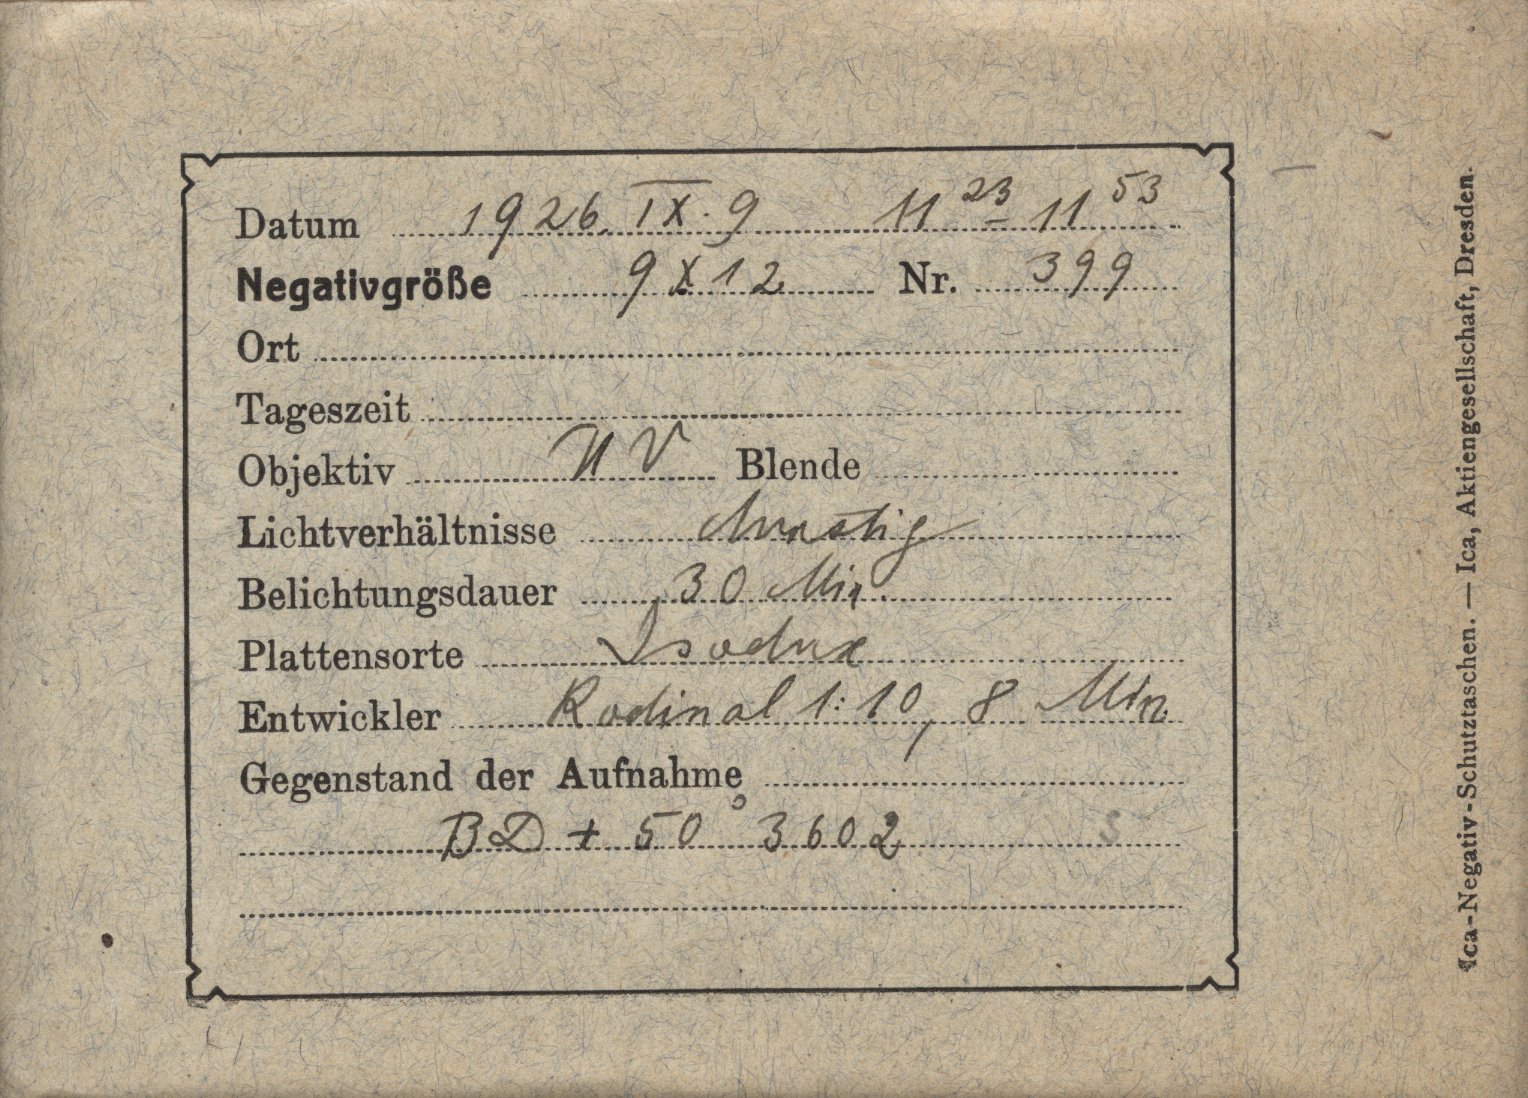 Datum 1926. IX. 9 11 23 - 11 53
Negativgröße 9 X 12 Nr. 399
Ort
Tageszeit
Objektiv UV Blende
Lichtverhältnisse dunstig
Belichtungsdauer 30 Min.
Plattensorte Isodux
Entwickler Rodinal 1:10, 8 Min
Gegenstand der Aufnahme
BD + 50° 3602 S
Ica-Negativ-Schutztaschen. — Ica, Aktiengesellschaft, Dresden.